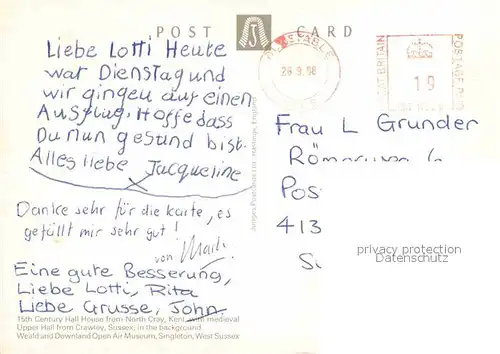 POST CARD
Liebe Lotti Heute
war Dienstag und
wir gingen auf einen
Ausflug. Hoffe dass
Du nun gesund bist.
Alles liebe Jacqueline
Danke sehr für die karte, es
gefüllt mir sehr gut!
von
Eine gute Besserung,
Liebe Lotti, Rita
Liebe Grusse, John.
15th Century Hall House from North Cray, Kent, with medieval
Upper Hall from Crawley, Sussex, in the background
Weald and Downland Open Air Museum, Singleton, West Sussex
Judges Postcards Ltd, Hastings, England
GREAT BRITAIN
19
POSTAGE PAID
Frau L Grunder
Pos
413
privacy protection
Datenschutz